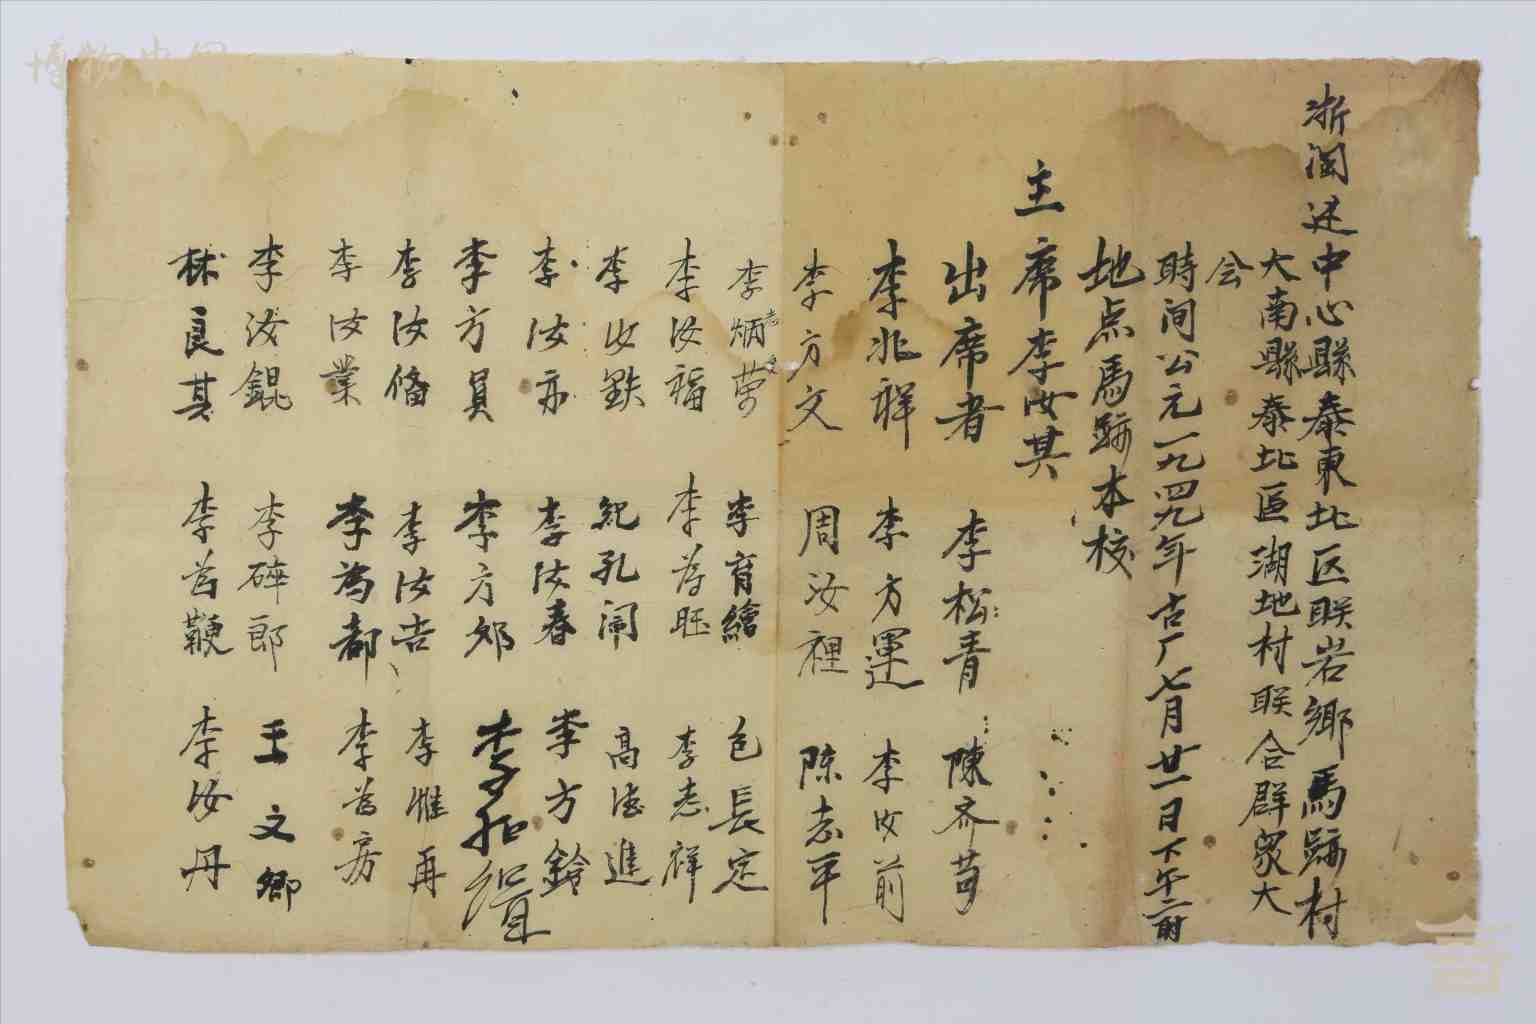 浙闽边中心縣泰東北区联岩鄉馬蹄村
大南縣泰北區湖地村联合群众大
会
時间公元一九四九年古厂七月廿一日下午二时
地点馬蹄本校
主席李汝其
出席者 李松青 陳齐
李兆祥 李方運 李汝前
李方文 周汝裡 陈志平
李炳 李育繪 包長定
李汝福 李 李志祥
李汝鉄 紀孔闹 高 進
李汝亦 李汝春 李方鈴
李方員 李方郊 李
李汝脩 李汝吉 李惟再
李汝業 李為都 李為房
李汝錕 李 郎 王文鄉
林良其 李為鞭 李汝丹
博物中国